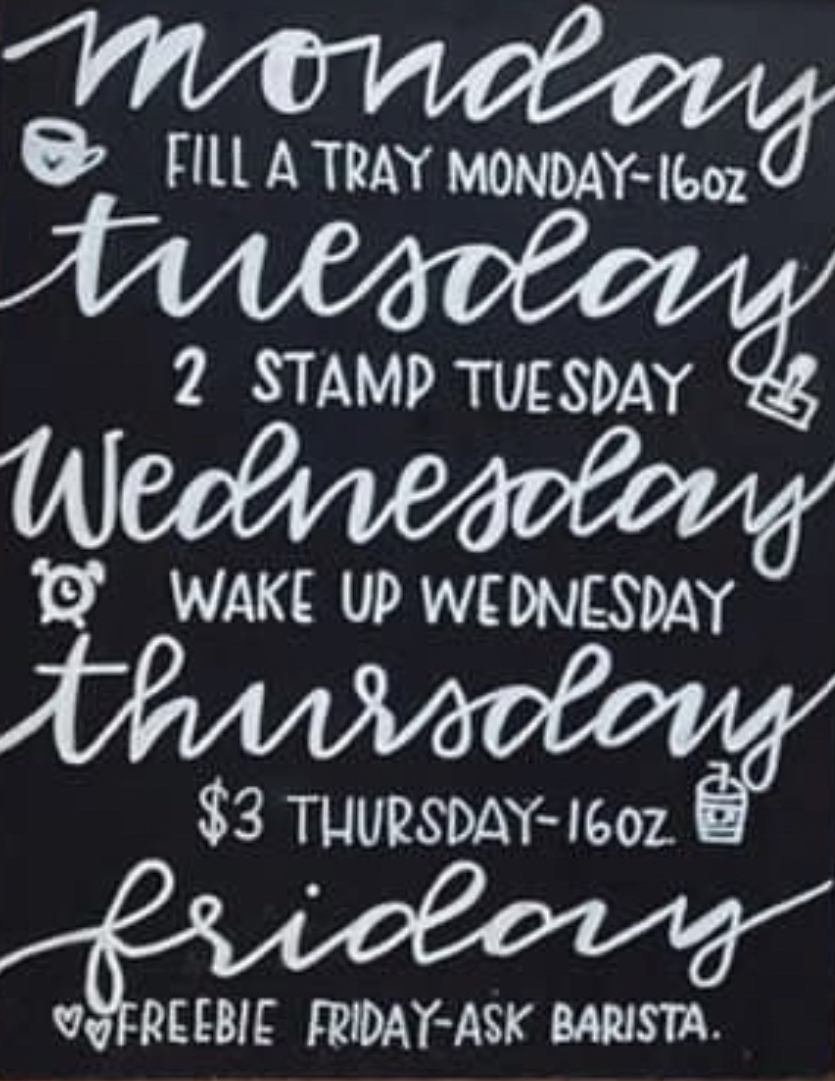 monday
FILL A TRAY MONDAY-16oz
tuesday
2 STAMP TUESDAY
Wednesday
WAKE UP WEDNESDAY
thursday
$3 THURSDAY-16oz.
friday
FREEBIE FRIDAY-ASK BARISTA.